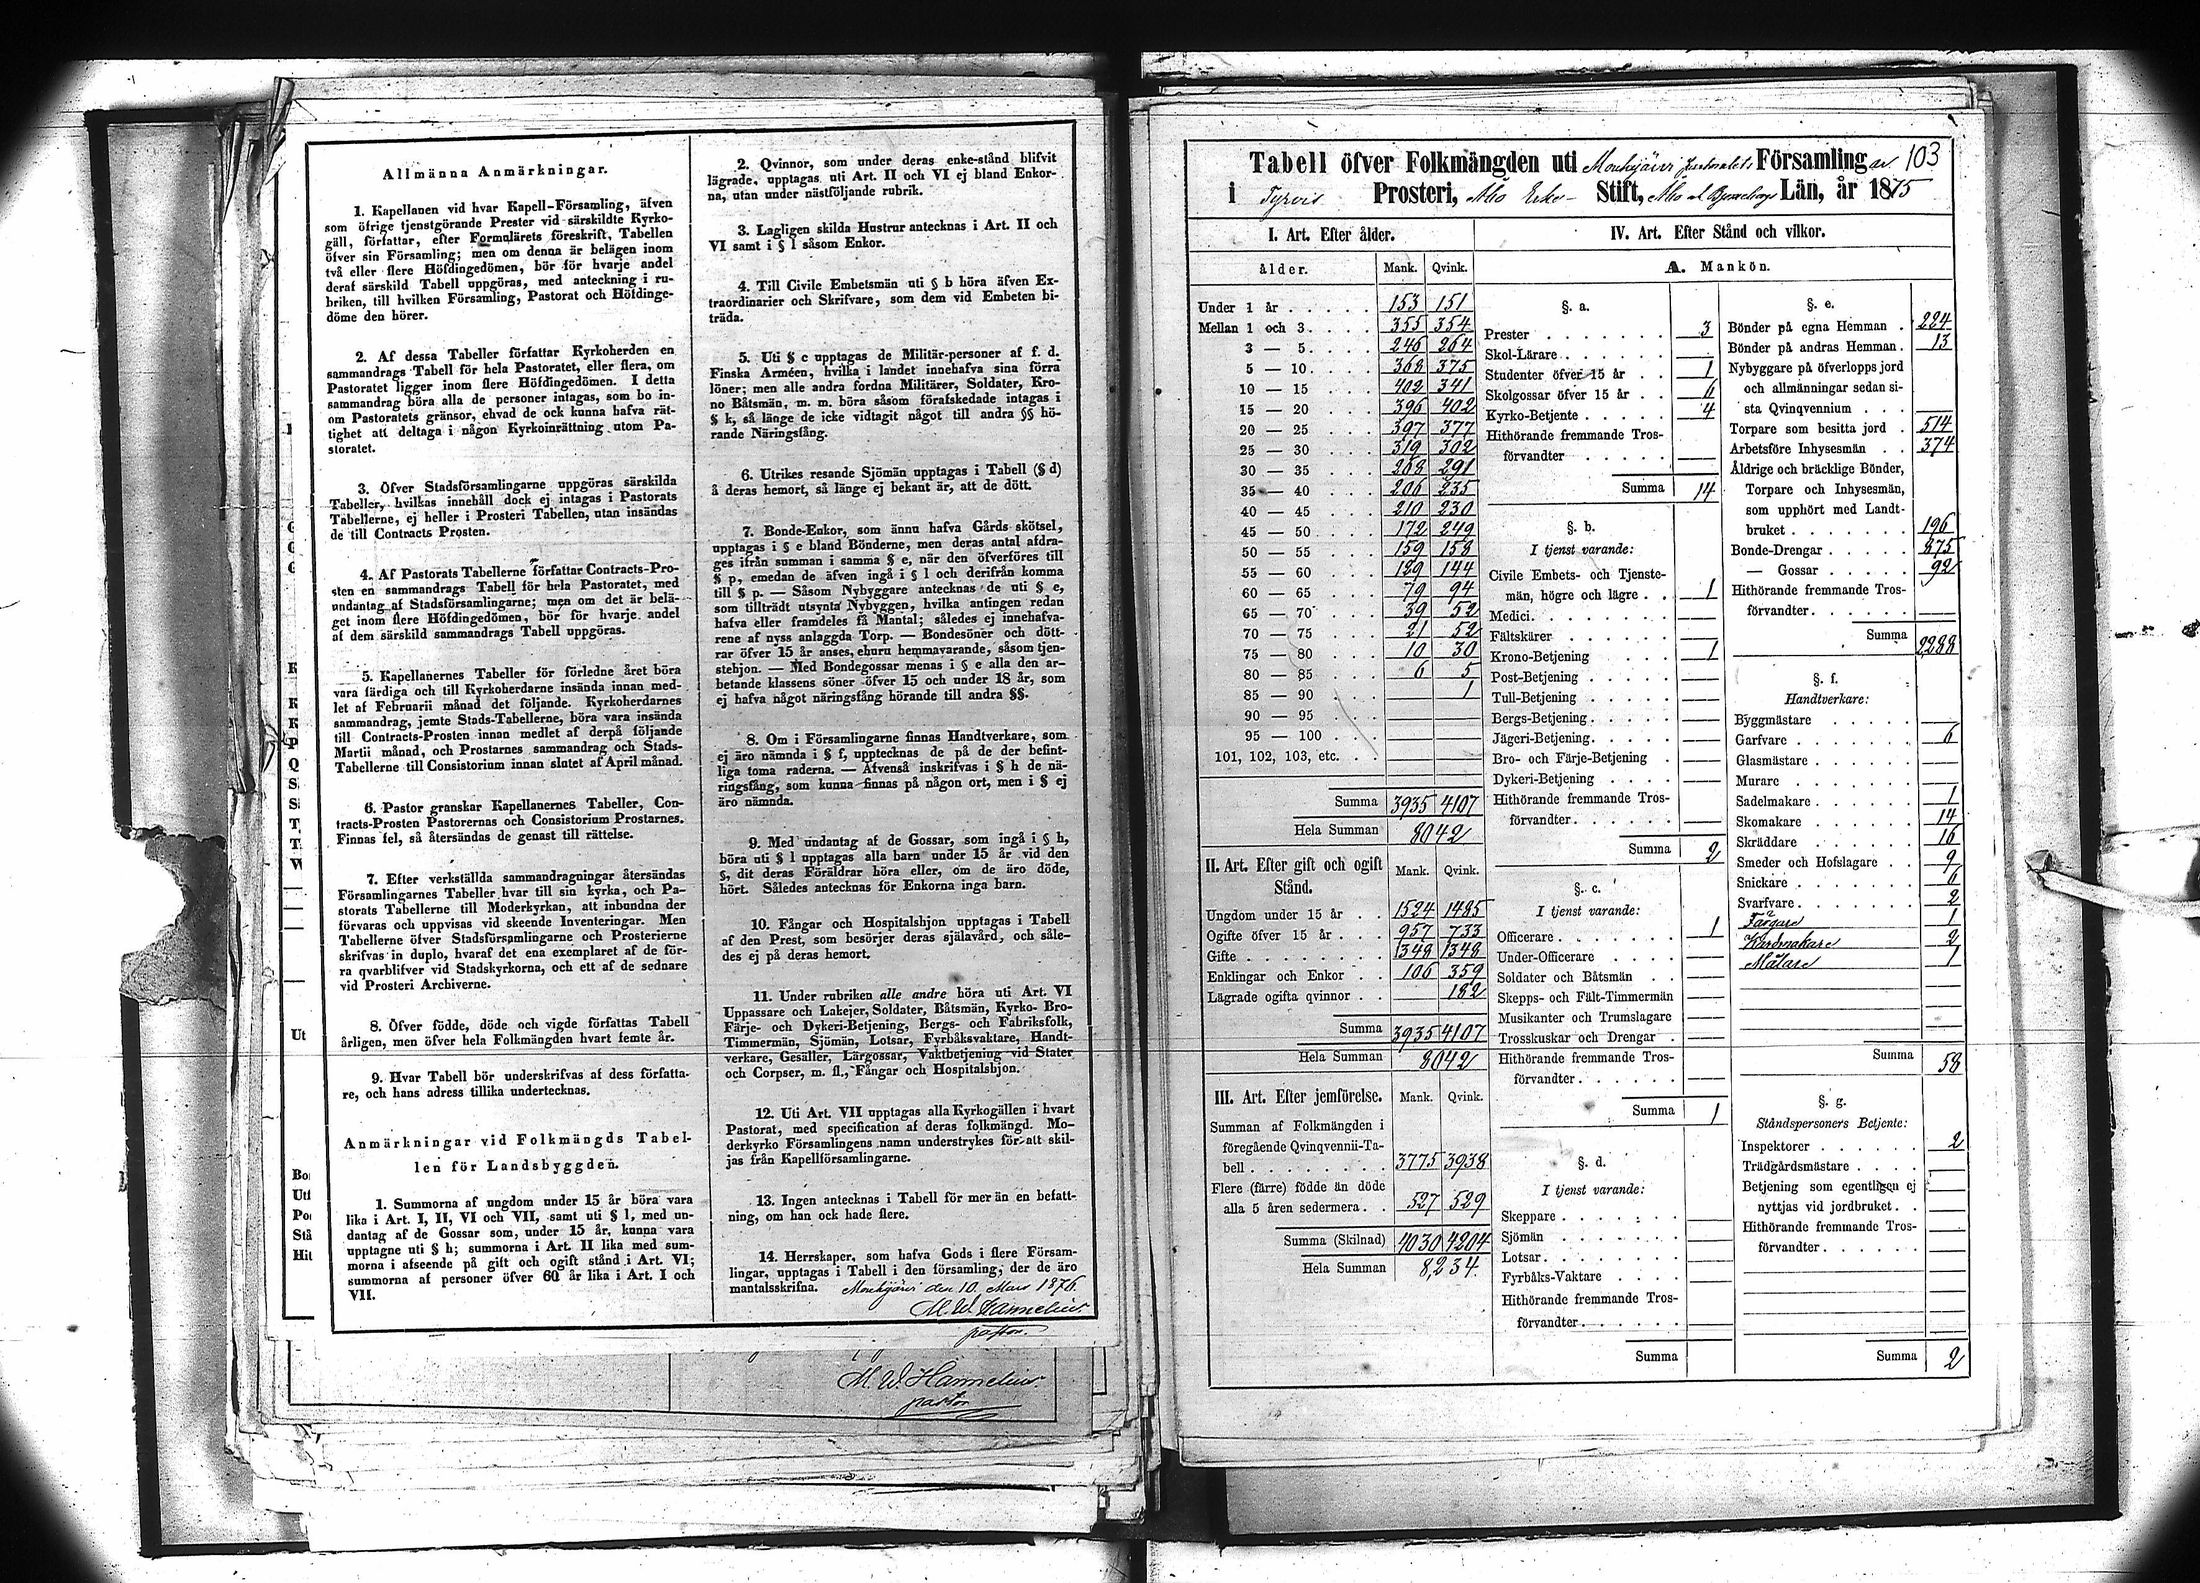 Allmänna Anmärkningar.
1. Kapellanen vid hvar Kapell-Församling, äfven
som öfrige tjenstgörande Prester vid särskildte Kyrko-
gäll, författar, efter Formulärets föreskrift, Tabellen
öfver sin Församling; men om denna är belägen inom
två eller flere Höfdingedömen, bör för hvarje andel
deraf särskild Tabell uppgöras, med anteckning i ru-
briken, till hvilken Församling, Pastorat och Höfdinge-
döme den hörer.
2. Af dessa Tabeller författar Kyrkoherden en
sammandrags Tabell för hela Pastoratet, eller flera, om
Pastoratet ligger inom flere Höfdingedömen. I detta
sammandrag böra alla de personer intagas, som bo in-
om Pastoratets gränsor, ehvad de ock kunna hafva rät-
tighet att deltaga i någon Kyrkoinrättning utom Pa-
storatet.
3. Öfver Stadsförsamlingarne uppgöras särskilda
Tabeller, hvilkas innehåll dock ej intagas i Pastorats
Tabellerne, ej heller i Prosteri Tabellen, utan insändas
de till Contracts Prosten.
4. Af Pastorats Tabellerne författar Contracts-Pro-
sten en sammandrags Tabell för hela Pastoratet, med
undantag af Stadsförsamlingarne; men om det är belä-
get inom flere Höfdingedömen, bör för hvarje andel
af dem särskild sammandrags Tabell uppgöras.
5. Kapellanernes Tabeller för förledne året böra
vara färdiga och till Kyrkoherdarne insända innan med-
let af Februarii månad det följande. Kyrkoherdarnes
sammandrag, jemte Stads-Tabellerne, böra vara insända
till Contracts-Prosten innan medlet af derpå följande
Martii månad, och Prostarnes sammandrag och Stads-
Tabellerne till Consistorium innan slutet af April månad.
6. Pastor granskar Kapellanernes Tabeller, Con-
tracts-Prosten Pastorernas och Consistorium Prostarnes.
Finnas fel, så återsändas de genast till rättelse.
7. Efter verkställda sammandragningar återsändas
Församlingarnes Tabeller hvar till sin kyrka, och Pa-
storats Tabellerne till Moderkyrkan, att inbundna der
förvaras och uppvisas vid skeende Inventeringar. Men
Tabellerne öfver Stadsförsamlingarne och Prosterierne
skrifvas in duplo, hvaraf det ena exemplaret af de för-
ra qvarblifver vid Stadskyrkorna, och ett af de sednare
vid Prosteri Archiverne.
8. Öfver födde, döde och vigde författas Tabell
årligen, men öfver hela Folkmängden hvart femte år.
9. Hvar Tabell bör underskrifvas af dess författa-
re, och hans adress tillika undertecknas.
Anmärkningar vid Folkmängds Tabel-
len för Landsbyggden.
1. Summorna af ungdom under 15 år böra vara
lika i Art. I, II, VI och VII, samt uti § l, med un-
dantag af de Gossar som, under 15 år, kunna vara
upptagne uti § h; summorna i Art. II lika med sum-
morna i afseende på gift och ogift stånd i Art. VI;
summorna af personer öfver 60 år lika i Art. I och
VII.
2. Qvinnor, som under deras enke-stånd blifvit
lägrade, upptagas uti Art. II och VI ej bland Enkor-
na, utan under nästföljande rubrik.
3. Lagligen skilda Hustrur antecknas i Art. II och
VI samt i § l såsom Enkor.
4. Till Civile Embetsmän uti § b höra äfven Ex-
traordinarier och Skrifvare, som dem vid Embeten bi-
träda.
5. Uti § c upptagas de Militär-personer af f. d.
Finska Arméen, hvilka i landet innehafva sina förra
löner; men alla andra fordna Militärer, Soldater, Kro-
no Båtsmän, m. m. böra såsom förafskedade intagas i
§ k, så länge de icke vidtagit något till andra §§ hö-
rande Näringsfång.
6. Utrikes resande Sjömän upptagas i Tabell (§ d)
å deras hemort, så länge ej bekant är, att de dött.
7. Bonde-Enkor, som ännu hafva Gårds skötsel,
upptagas i § e bland Bönderne, men deras antal afdra-
ges ifrån summan i samma § e, när den öfverföres till
§ p, emedan de äfven ingå i § l och derifrån komma
till § p. — Såsom Nybyggare antecknas de uti § e,
som tillträdt utsynta Nybyggen, hvilka antingen redan
hafva eller framdeles få Mantal; således ej innehafva-
rene af nyss anlaggda Torp. — Bondesöner och dött-
rar öfver 15 år anses, ehuru hemmavarande, såsom tjen-
stehjon. — Med Bondegossar menas i § e alla den ar-
betande klassens söner öfver 15 och under 18 år, som
ej hafva något näringsfång hörande till andra §§.
8. Om i Församlingarne finnas Handtverkare, som
ej äro nämnda i § f, upptecknas de på de der befint-
liga toma raderna. — Äfvenså inskrifvas i § h de nä-
ringsfång, som kunna finnas på någon ort, men i § ej
äro nämnda.
9. Med undantag af de Gossar, som ingå i § h,
böra uti § l upptagas alla barn under 15 år vid den
§, dit deras Föräldrar höra eller, om de äro döde,
hört. Således antecknas för Enkorna inga barn.
10. Fångar och Hospitalshjon upptagas i Tabell
af den Prest, som besörjer deras själavård, och såle-
des ej på deras hemort.
11. Under rubriken alle andre höra uti Art. VI
Uppassare och Lakejer, Soldater, Båtsmän, Kyrko- Bro-
Färje- och Dykeri-Betjening, Bergs- och Fabriksfolk,
Timmermän, Sjömän, Lotsar, Fyrbåksvaktare, Handt-
verkare, Gesäller, Lärgossar, Vaktbetjening vid Stater
och Corpser, m. fl., Fångar och Hospitalshjon.
12. Uti Art. VII upptagas alla Kyrkogällen i hvart
Pastorat, med specification af deras folkmängd. Mo-
derkyrko Församlingens namn understrykes för att skil-
jas från Kapellförsamlingarne.
13. Ingen antecknas i Tabell för mer än en befatt-
ning, om han ock hade flere.
14. Herrskaper, som hafva Gods i flere Försam-
lingar, upptagas i Tabell i den församling, der de äro
mantalsskrifna. Mouhijärvi den 10 Mars 1876.
M. W. Hannelius
pastor.
M. W. Hannelius.
pastor
Tabell öfver Folkmängden uti Mouhijärvi pastorats Församling ar 103
i Tyrvis Prosteri, Åbo Erke- Stift, Åbo o. Bjerneborgs Län, år 1875
I. Art. Efter ålder.
ålder. Mank. Qvink.
Under 1 år 153 151
Mellan 1 och 3 355 354
3 — 5 246 264
5 — 10 368 375
10 — 15 402 341
15 — 20 396 402
20 — 25 397 377
25 — 30 319 302
30 — 35 268 291
35 — 40 206 235
40 — 45 210 230
45 — 50 172 249
50 — 55 159 158
55 — 60 129 144
60 — 65 79 94
65 — 70 39 52
70 — 75 21 52
75 — 80 10 30
80 — 85 6 5
85 — 90 1
90 — 95
95 — 100
101, 102, 103, etc.
Summa 3935 4107
Hela Summan 8042
II. Art. Efter gift och ogift Stånd. Mank. Qvink.
Ungdom under 15 år 1524 1485
Ogifte öfver 15 år 957 733
Gifte 1348 1348
Enklingar och Enkor 106 359
Lägrade ogifta qvinnor 182
Summa 3935 4107
Hela Summan 8042
III. Art. Efter jemförelse. Mank. Qvink.
Summan af Folkmängden i
föregående Qvinqvennii-Ta-
bell 3775 3938
Flere (färre) födde än döde
alla 5 åren sedermera 527 529
Summa (Skilnad) 4030 4204
Hela Summan 8,234.
IV. Art. Efter Stånd och vilkor.
A. Mankön.
§. a.
Prester 3
Skol-Lärare
Studenter öfver 15 år 1
Skolgossar öfver 15 år 6
Kyrko-Betjente 4
Hithörande fremmande Tros-
förvandter
Summa 14
§. b.
I tjenst varande:
Civile Embets- och Tjenste-
män, högre och lägre 1
Medici
Fältskärer
Krono-Betjening 1
Post-Betjening
Tull-Betjening
Bergs-Betjening
Jägeri-Betjening
Bro- och Färje-Betjening
Dykeri-Betjening
Hithörande fremmande Tros-
förvandter
Summa 2
§. c.
I tjenst varande:
Officerare 1
Under-Officerare
Soldater och Båtsmän
Skepps- och Fält-Timmermän
Musikanter och Trumslagare
Trosskuskar och Drengar
Hithörande fremmande Tros-
förvandter
Summa 1
§. d.
I tjenst varande:
Skeppare
Sjömän
Lotsar
Fyrbåks-Vaktare
Hithörande fremmande Tros-
förvandter
Summa
§. e.
Bönder på egna Hemman 224
Bönder på andras Hemman 13
Nybyggare på öfverlopps jord
och allmänningar sedan si-
sta Qvinqvennium
Torpare som besitta jord 514
Arbetsföre Inhysesmän 374
Åldrige och bräcklige Bönder,
Torpare och Inhysesmän,
som upphört med Landt-
bruket 196
Bonde-Drengar 875
— Gossar 92
Hithörande fremmande Tros-
förvandter
Summa 2288
§. f.
Handtverkare:
Byggmästare
Garfvare 6
Glasmästare
Murare
Sadelmakare 1
Skomakare 14
Skräddare 16
Smeder och Hofslagare 9
Snickare 6
Svarfvare 2
Färgare 1
2
Målare 1
Summa 58
§. g.
Ståndspersoners Betjente:
Inspektorer 2
Trädgårdsmästare
Betjening som egentligen ej
nyttjas vid jordbruket
Hithörande fremmande Tros-
förvandter
Summa 2